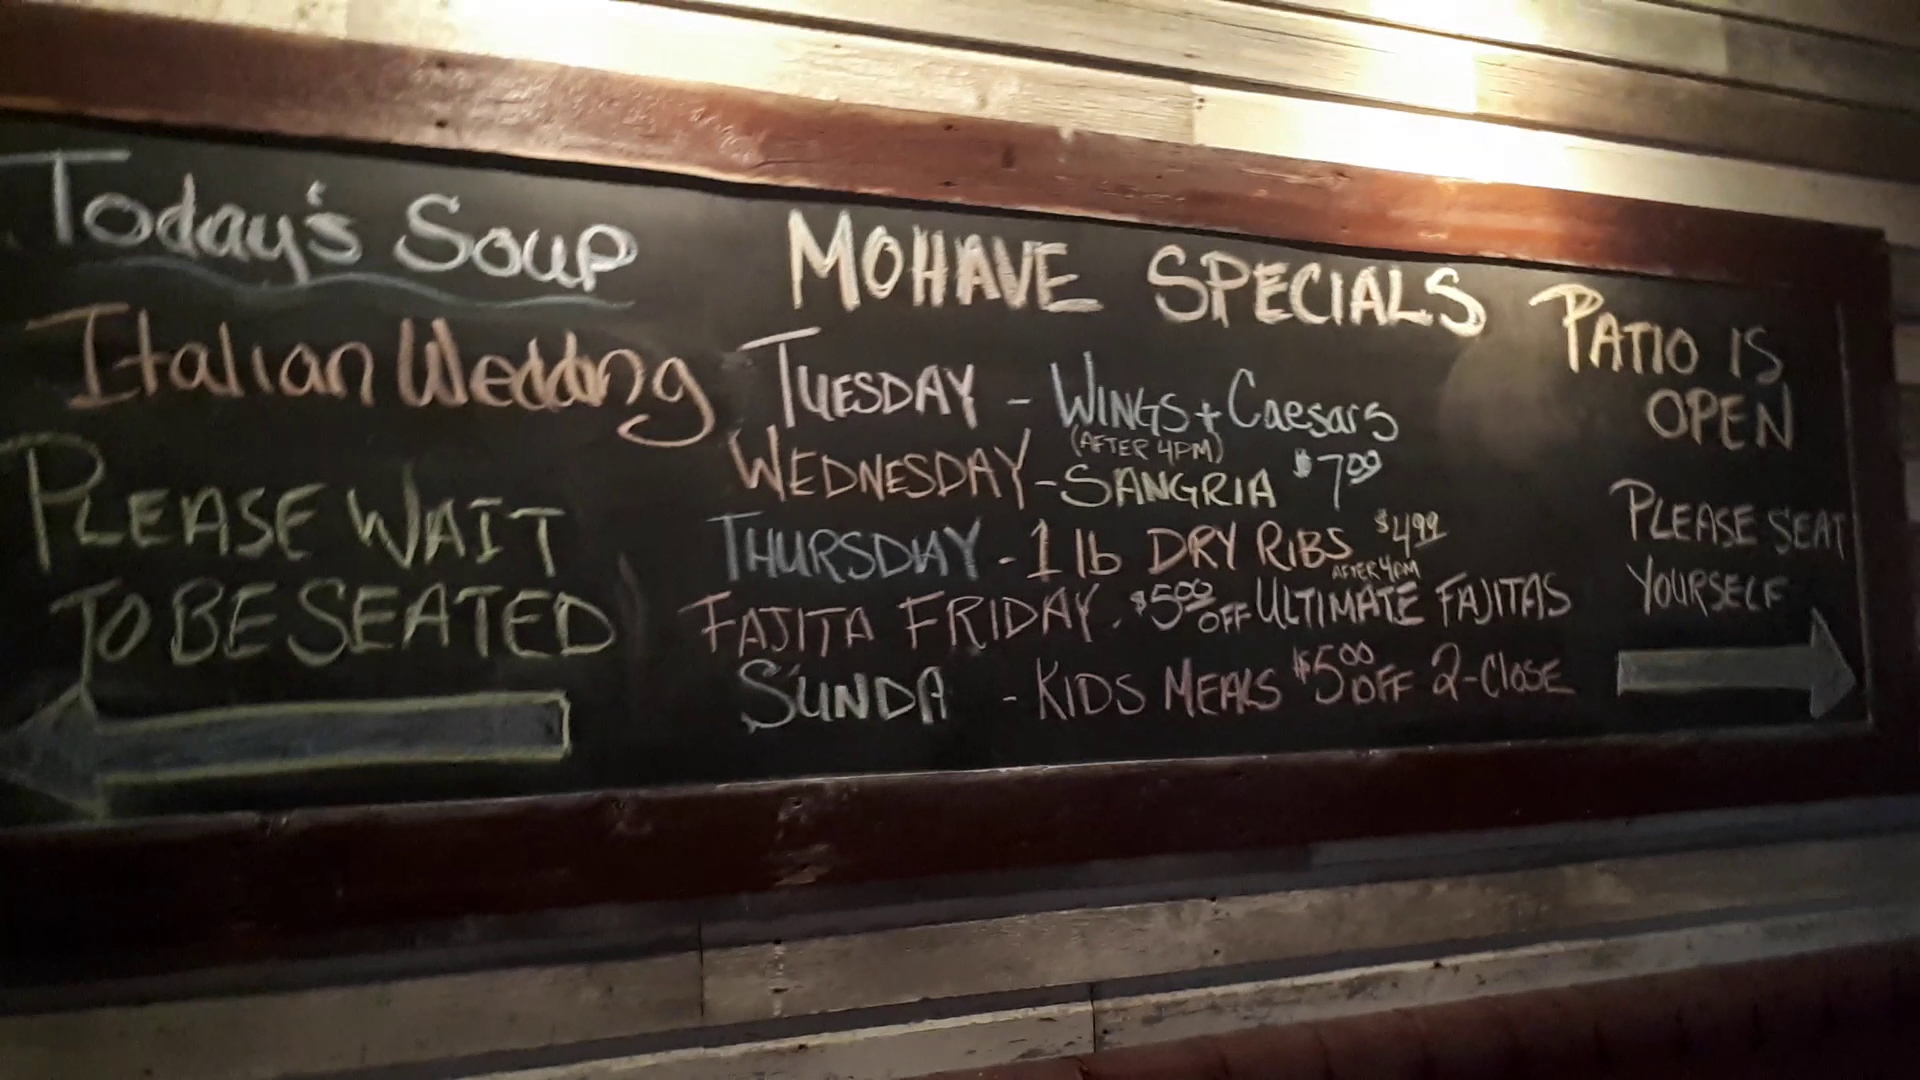 Today's Soup
Italian Wedding
PLEASE WAIT
TO BE SEATED
MOHAVE SPECIALS
TUESDAY - WINGS + Caesars
(AFTER 4PM)
WEDNESDAY - SANGRIA $7.00
THURSDAY - 1 lb DRY RIBS $4.99
AFTER 4PM
FAJITA FRIDAY. $5.00 OFF ULTIMATE FAJITAS
SUNDA - KIDS MEALS $5.00 OFF 2-Close
PATIO IS
OPEN
PLEASE SEAT
YOURSELF